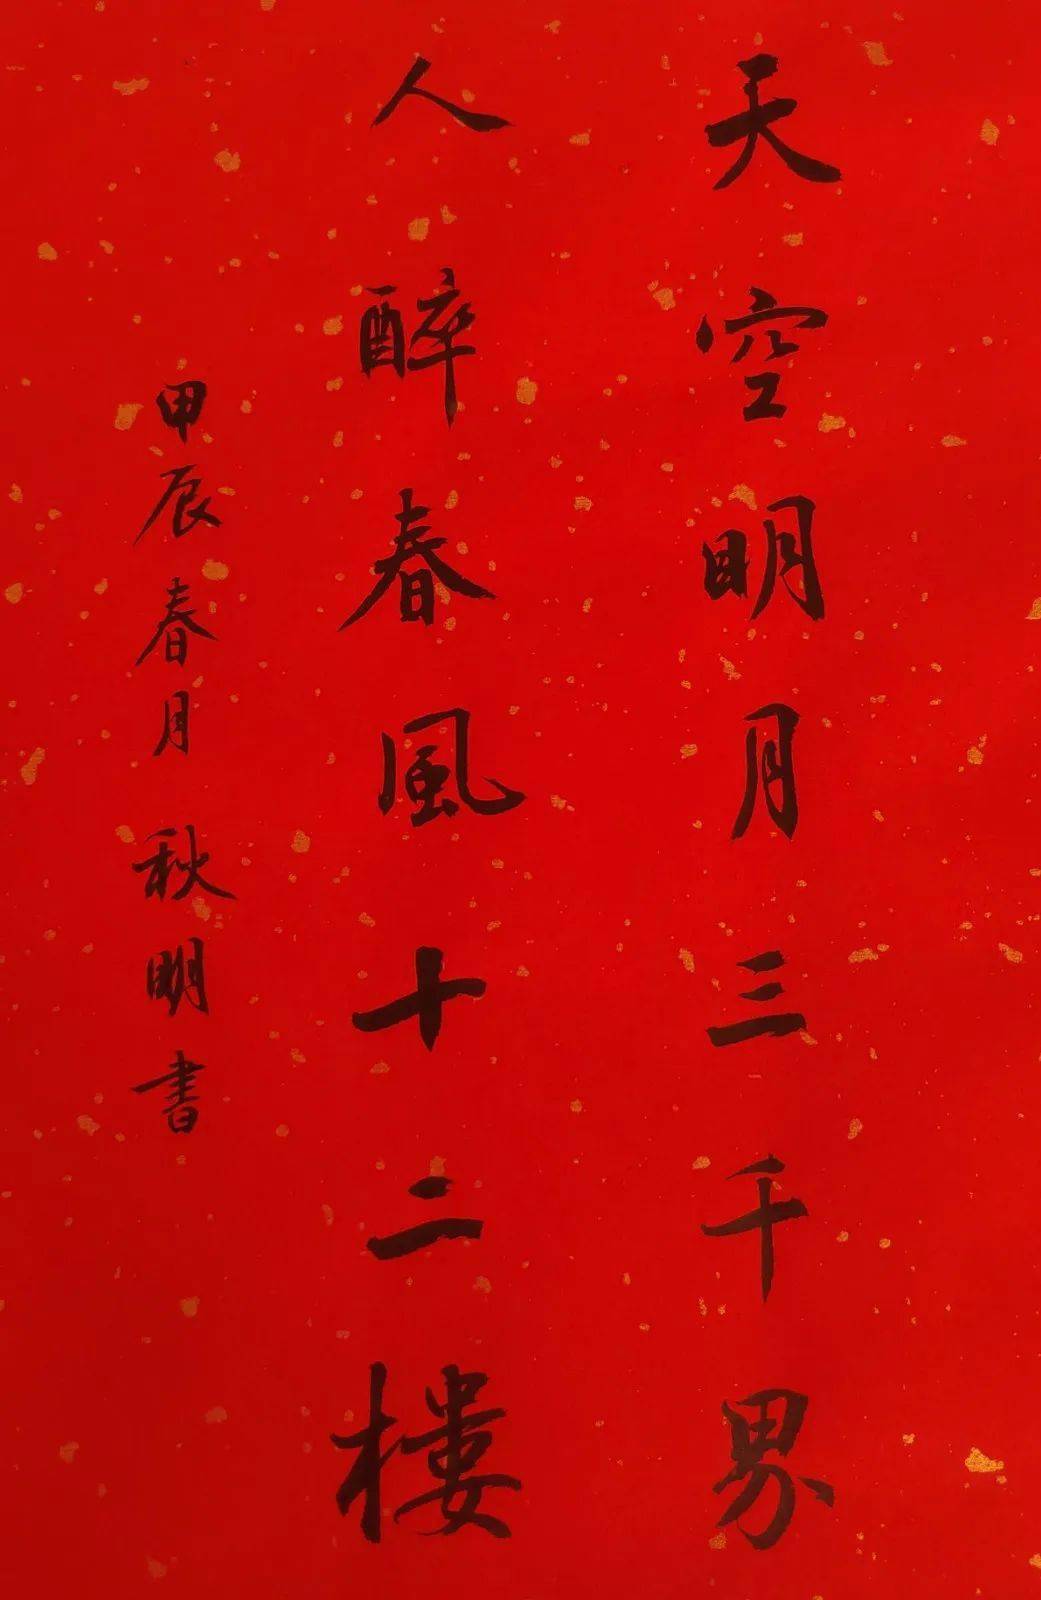 天空明月三千界
人醉春風十二樓
甲辰春月 秋明書